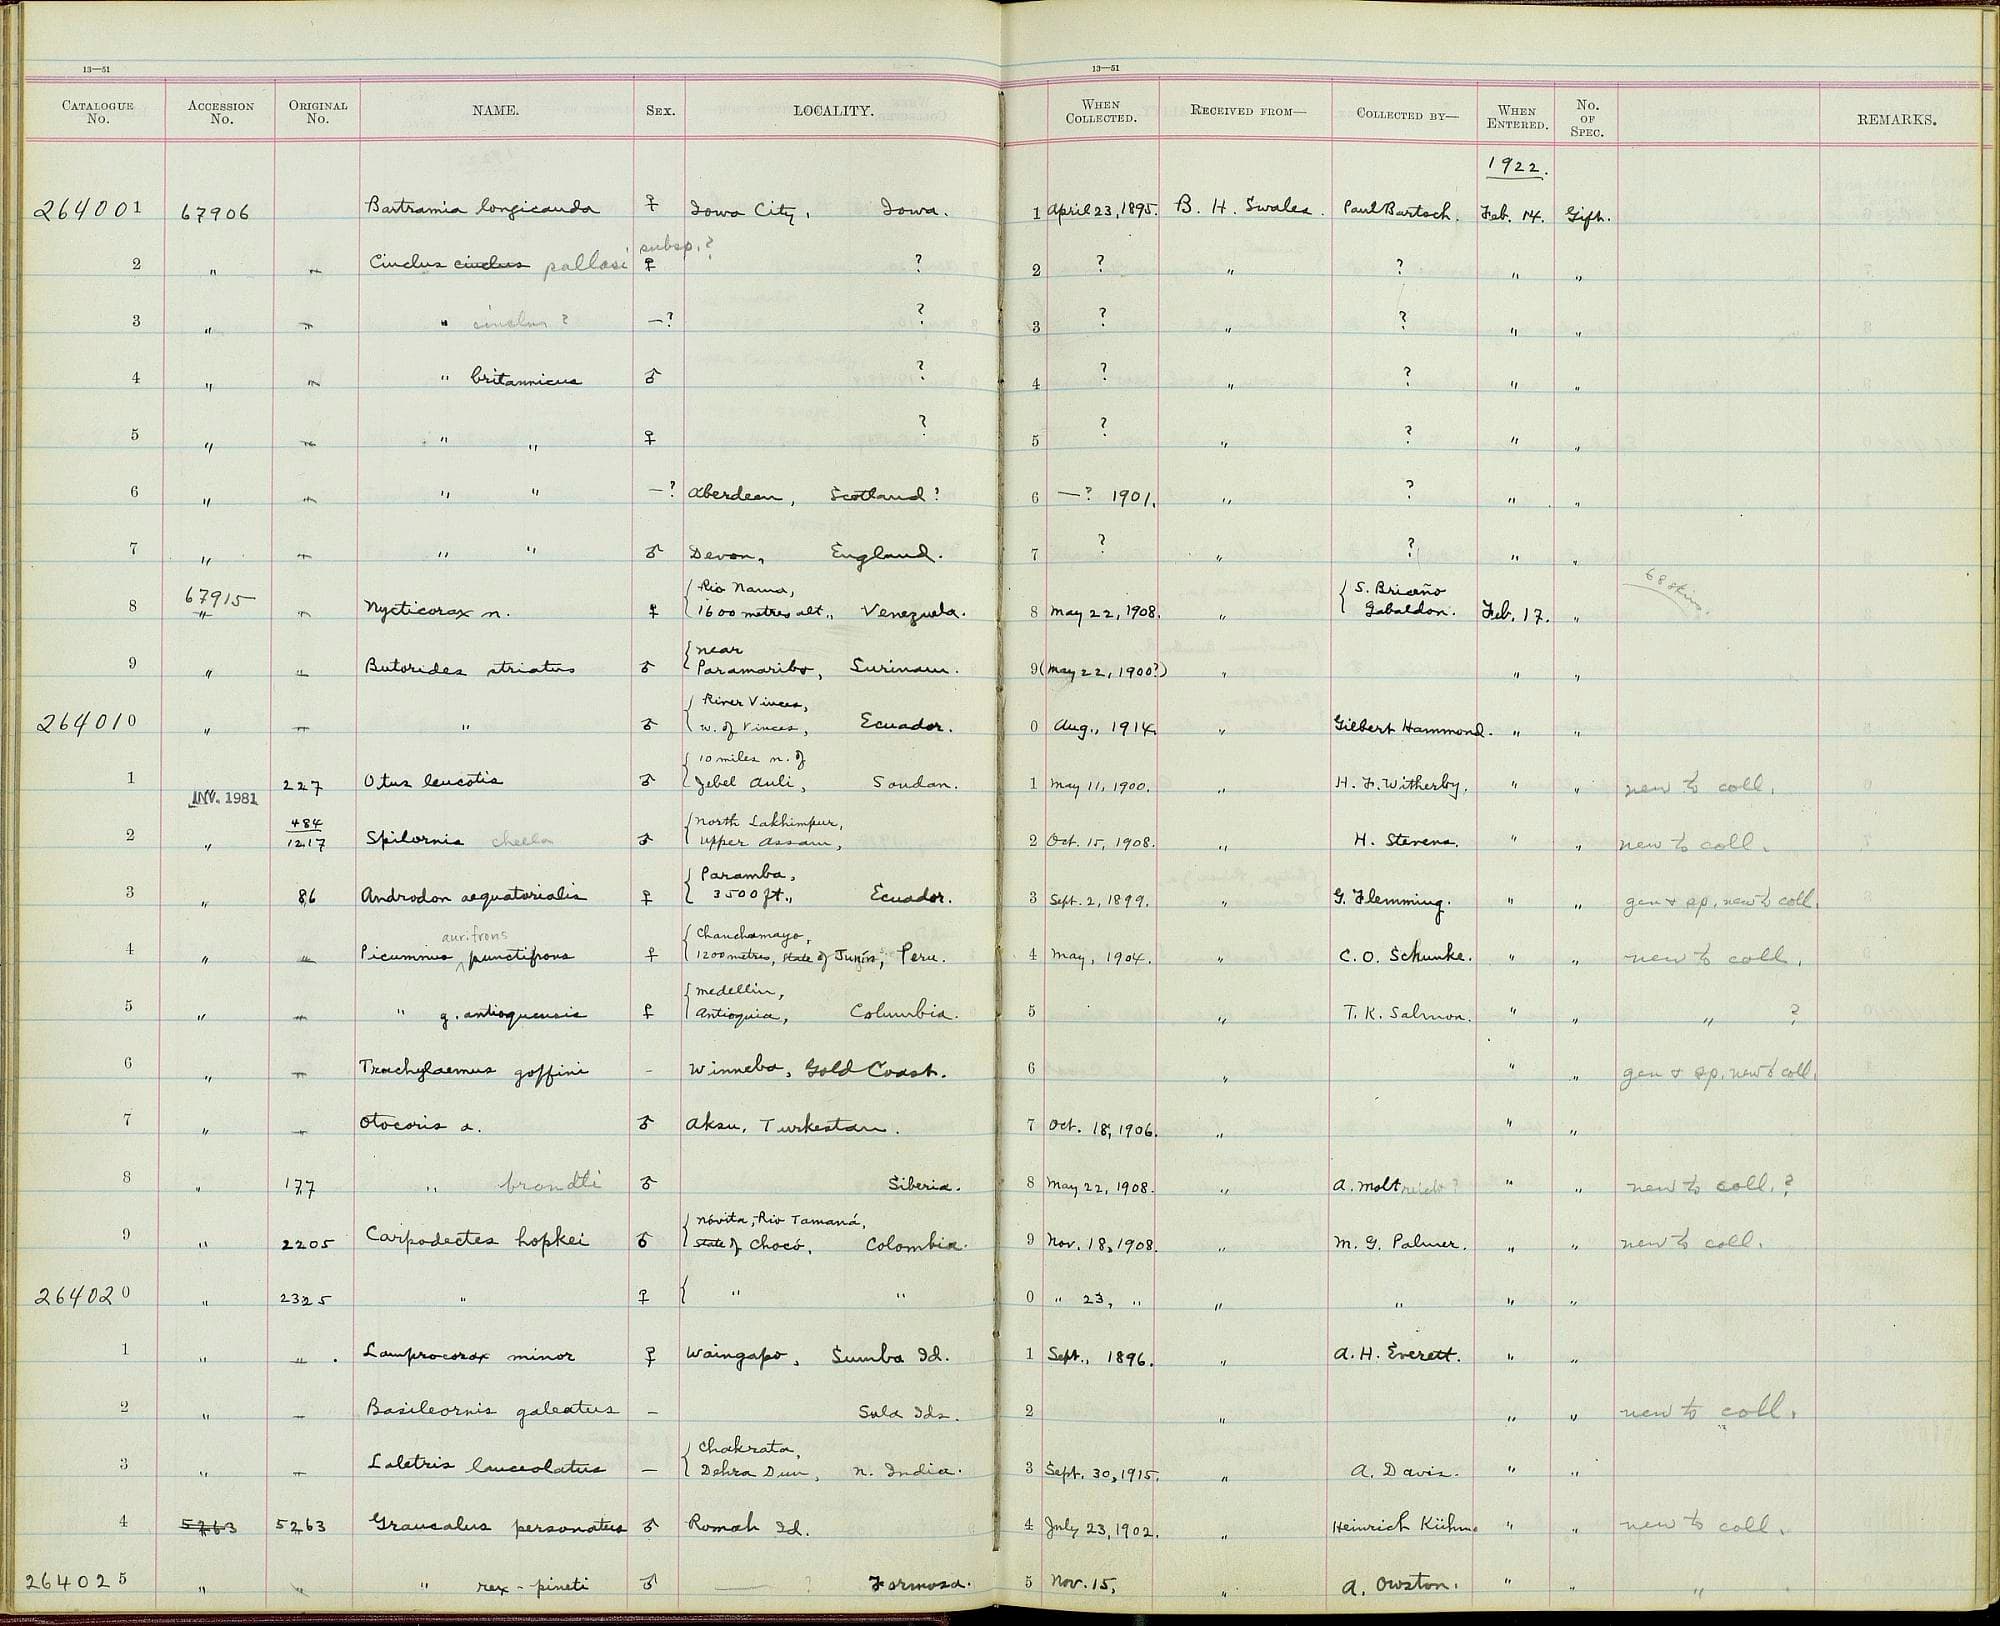 13—51 13—51
CATALOGUE No. ACCESSION No. ORIGINAL No. NAME. SEX. LOCALITY. WHEN COLLECTED. RECEIVED FROM— COLLECTED BY— WHEN ENTERED. No. OF SPEC. REMARKS.
1922.
264001 67906 Bartramia longicauda ♀ Iowa City, Iowa. 1 April 23, 1895. B. H. Swales. Paul Bartsch. Feb. 14. Gift.
subsp.?
2 " " Cinclus cinclus pallasi ♀ ? 2 ? " ? " "
3 " " " cinclus ? —? ? 3 ? " ? " "
4 " " " britannicus ♂ ? 4 ? " ? " "
5 " " " " ♀ ? 5 ? " ? " "
6 " " " " —? Aberdeen, Scotland? 6 —? 1901. " ? " "
7 " " " " ♂ Devon, England. 7 ? " ? " "
67915 { Rio Nama, { S. Briceño 68 skins.
8 " " Nycticorax n. ♀ 1600 metres alt., Venezuela. 8 May 22, 1908. " Gabaldon. Feb. 17. "
{ near
9 " " Butorides striatus ♂ Paramaribo, Surinam. 9 (May 22, 1900?) " " "
{ River Vinces,
264010 " " " ♂ w. of Vinces, Ecuador. 0 Aug., 1914. " Gilbert Hammond. " "
{ 10 miles n. of
1 227 Otus leucotis ♂ Jebel Auli, Soudan. 1 May 11, 1900. " H. F. Witherby. " " new to coll.
INV. 1981
484 { North Lakhimpur,
2 " 1217 Spilornis cheela ♂ Upper Assam, 2 Oct. 15, 1908. " H. Stevens. " " new to coll.
{ Paramba,
3 " 86 Androdon aequatorialis ♀ 3500 ft., Ecuador. 3 Sept. 2, 1899. " G. Flemming. " " gen & sp. new to coll.
aurifrons { Chanchamayo,
4 " " Picumnus punctifrons ♀ 1200 metres, State of Junín, Peru. 4 May, 1904. " C. O. Schunke. " " new to coll.
{ Medellin,
5 " " " g. antioquensis ♀ Antioquia, Columbia. 5 " T. K. Salmon. " " " ?
6 " " Trachylaemus goffini - Winneba, Gold Coast. 6 " " " gen & sp. new to coll.
7 " — Otocoris a. ♂ Aksu, Turkestan. 7 Oct. 18, 1906. " " "
8 " 177 " brandti ♂ Siberia. 8 May 22, 1908. " A. Molt ? " " new to coll.?
{ Nóvita, Rio Tamaná,
9 " 2205 Carpodectes hopkei ♂ State of Chocó, Colombia. 9 Nov. 18, 1908. " M. G. Palmer. " " new to coll.
264020 " 2325 " ♀ { " " 0 " 23, " " " " "
1 " " Lamprocorax minor ♀ Waingapo, Sumba Id. 1 Sept., 1896. " A. H. Everett. " "
2 " — Basileornis galeatus — Sula Ids. 2 " " " new to coll.
{ Chakrata,
3 " — Laletris lanceolatus — Dehra Dun, N. India. 3 Sept. 30, 1915. " A. Davis. " "
4 5263 5263 Graucalus personatus ♂ Romah Id. 4 July 23, 1902. " Heinrich Kühn. " " new to coll.
264025 " " " rex-pineti ♂ — ? Formosa. 5 Nov. 15, " A. Owston. " " "